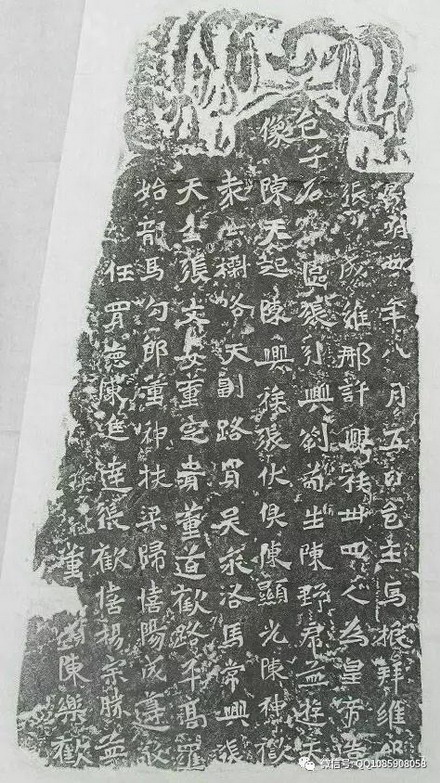 景明四年八月五日邑主馬振拜維那
張成維那許興族卅四人為皇帝造
邑子石區張引興劉苟生陳野虎孟遊天
像陳天起陳興張伏俱陳顯光陳神歡
袁樹路天副路買吴永洛馬常興張
天生張文安董定貴董道歡路平高羅
始龍馬勾郎董神扶梁歸憘陽成遵敬
任買德陳進達張歡憘楊宗勝孟
董陳樂歡
微信号: QQ1085908058